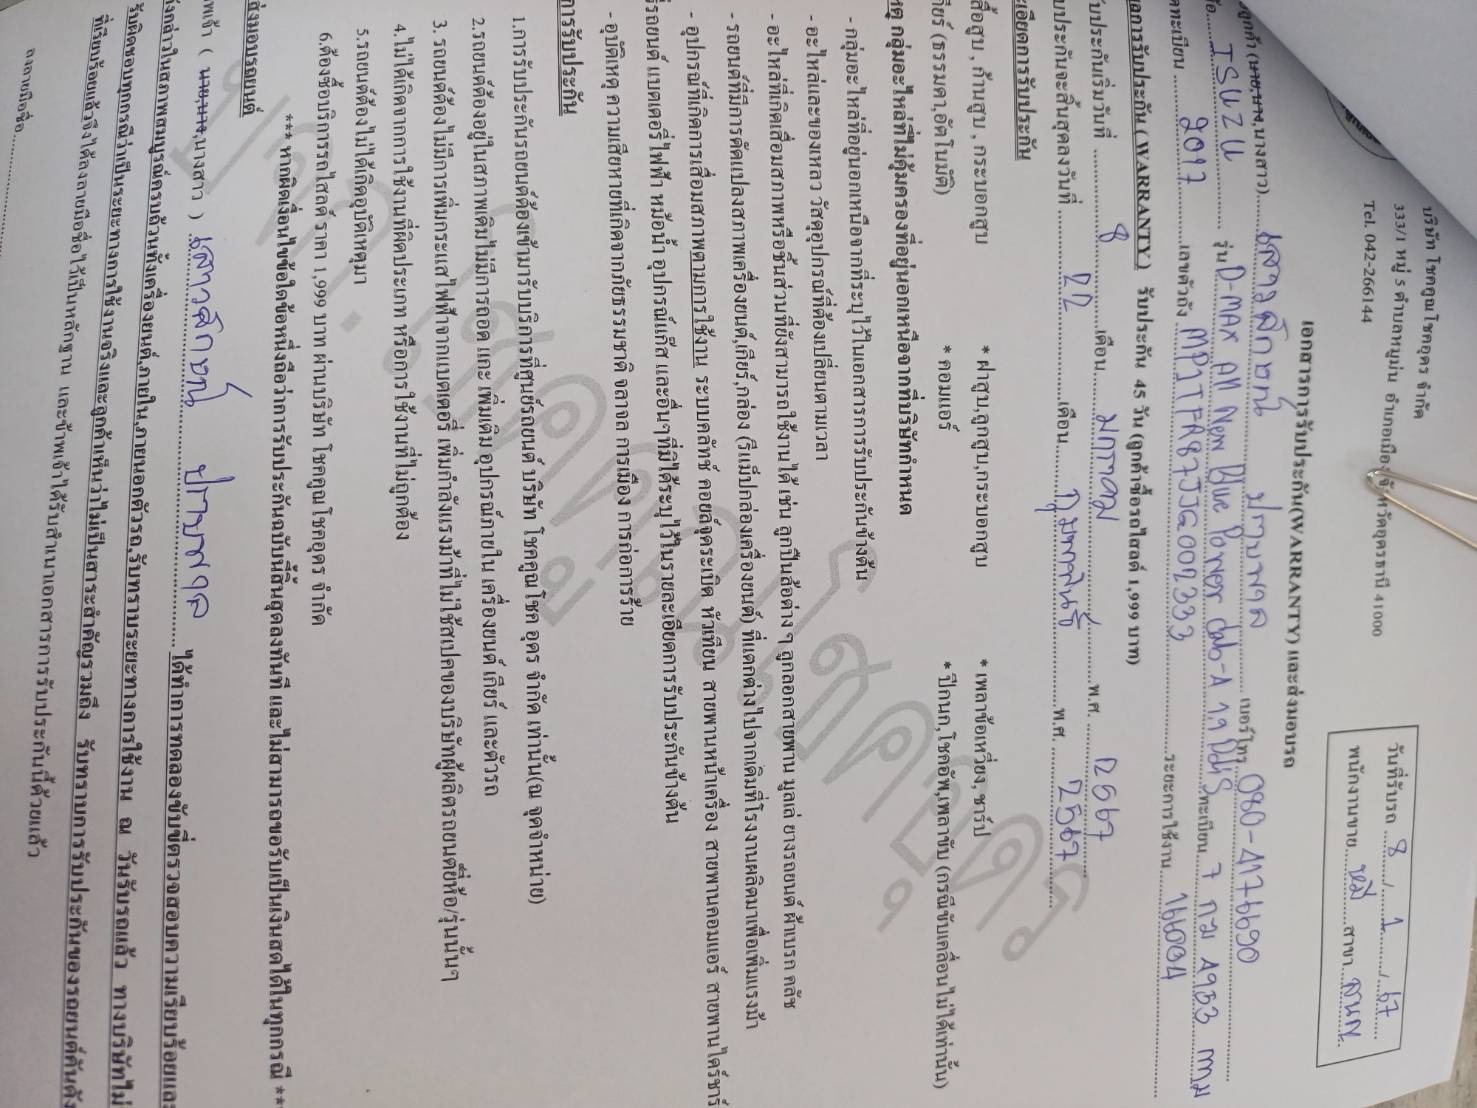 บริษัท โชคคูณโชคอุดร จำกัด
333/1 หมู่ 5 ตำบลหมูม่น อำเภอเมือง จังหวัดอุดรธานี 41000
Tel. 042-266144
วันที่รับรถ 8 / 1 / 67
พนักงานขาย หมี สาขา
เอกสารการรับประกัน(WARRANTY) และส่งมอบรถ
ลูกค้า (นาย,นาง,นางสาว) เสาวลักษณ์ เบอร์โทร 080-4176690
ISUZU รุ่น D-max All New Blue Power cab-A 1.9 ทะเบียน 7 กฆ 4933 กทม
ทะเบียน 2017 เลขตัวถัง MP1TFR87JJG002333 ระยะการใช้งาน 166034
เอกการรับประกัน (WARRANTY) รับประกัน 45 วัน (ลูกค้าซื้อรถไสลด์ 1,999 บาท)
รับประกันเริ่มวันที่ 8 เดือน มกราคม พ.ศ. 2567
ประกันจะสิ้นสุดลงวันที่ 22 เดือน กุมภาพันธ์ พ.ศ. 2567
เอียดการรับประกัน
เสื้อสูบ , ก้านสูบ , กระบอกสูบ * ฝาสูบ,ลูกสูบ,กระบอกสูบ * เพลาข้อเหวี่ยง, ชาร์ป
เกียร์ (ธรรมดา,อัตโนมัติ) * คอมแอร์ * ปีกนก,โชคอัพ,เพลาขับ (กรณีขับเคลื่อนไม่ได้เท่านั้น)
เหตุ กลุ่มอะไหล่ที่ไม่คุ้มครองที่อยู่นอกเหนือจากที่บริษัทกำหนด
- กลุ่มอะไหล่ที่อยู่นอกเหนือจากที่ระบุไว้ในเอกสารการรับประกันข้างต้น
- อะไหล่และของเหลว วัสดุอุปกรณ์ที่ต้องเปลี่ยนตามเวลา
- อะไหล่ที่เกิดเสื่อมสภาพหรือชิ้นส่วนที่ยังสามารถใช้งานได้ เช่น ลูกปืนล้อต่าง ๆ ลูกลอกสายพาน มูลเล่ ยางรถยนต์ ผ้าเบรก คลัช
- รถยนต์ที่มีการดัดแปลงสภาพเครื่องยนต์,เกียร์,กล่อง (รีแม็ปกล่องเครื่องยนต์) ที่แตกต่างไปจากเดิมที่โรงงานผลิตมาเพื่อเพิ่มแรงม้า
- อุปกรณ์ที่เกิดการเสื่อมสภาพตามการใช้งาน ระบบคลัทช์ คอยล์จุดระเบิด หัวเทียน สายพานหน้าเครื่อง สายพานคอมแอร์ สายพานไดร์ชาร์
รถยนต์ แบตเตอรี่ไฟฟ้า หม้อน้ำ อุปกรณ์แก๊ส และอื่นๆที่มิได้ระบุไว้ในรายละเอียดการรับประกันข้างต้น
- อุบัติเหตุ ความเสียหายที่เกิดจากภัยธรรมชาติ จลาจล การเมือง การก่อการร้าย
การรับประกัน
1.การรับประกันรถยนต์ต้องเข้ามารับบริการที่ศูนย์รถยนต์ บริษัท โชคคูณโชค อุดร จำกัด เท่านั้น(ณ จุดจำหน่าย)
2.รถยนต์ต้องอยู่ในสภาพเดิมไม่มีการถอด แกะ เพิ่มเติม อุปกรณ์ภายใน เครื่องยนต์ เกียร์ และตัวรถ
3. รถยนต์ต้องไม่มีการเพิ่มกระแสไฟฟ้าจากแบตเตอรี่ เพิ่มกำลังแรงม้าที่ไม่ใช้สเปคของบริษัทผู้ผลิตรถยนต์ยี่ห้อ/รุ่นนั้นๆ
4.ไม่ได้เกิดจากการใช้งานที่ผิดประเภท หรือการใช้งานที่ไม่ถูกต้อง
5.รถยนต์ต้องไม่ได้เกิดอุบัติเหตุมา
6.ต้องซื้อบริการรถไสลด์ ราคา 1,999 บาท ผ่านบริษัท โชคคูณโชคอุดร จำกัด
*** หากผิดเงื่อนไขข้อใดข้อหนึ่งถือว่าการรับประกันฉบับนี้สิ้นสุดลงทันที และไม่สามารถขอรับเป็นเงินสดได้ในทุกกรณี **
ส่งมอบรถยนต์
พเจ้า ( นาย,นาง,นางสาว ) เสาวลักษณ์ ได้ทำการทดลองขับขี่ตรวจสอบความเรียบร้อยและ
ดังกล่าวในสภาพสมบูรณ์ครบถ้วนทั้งเครื่องยนต์,ภายใน,ภายนอกตัวรถ,รับทราบระยะทางการใช้งาน ณ วันรับรถแล้ว ทางบริษัทไม่
รับผิดชอบทุกกรณีว่าเป็นระยะทางการใช้งานจริงและลูกค้าเห็นว่าไม่เป็นสาระสำคัญรวมถึง รับทราบการรับประกันของรถยนต์คันดัง
ที่เรียบร้อยแล้วจึงได้ลงลายมือชื่อไว้เป็นหลักฐาน และข้าพเจ้าได้รับสำเนาเอกสารการรับประกันนี้ด้วยแล้ว
ลงลายมือชื่อ